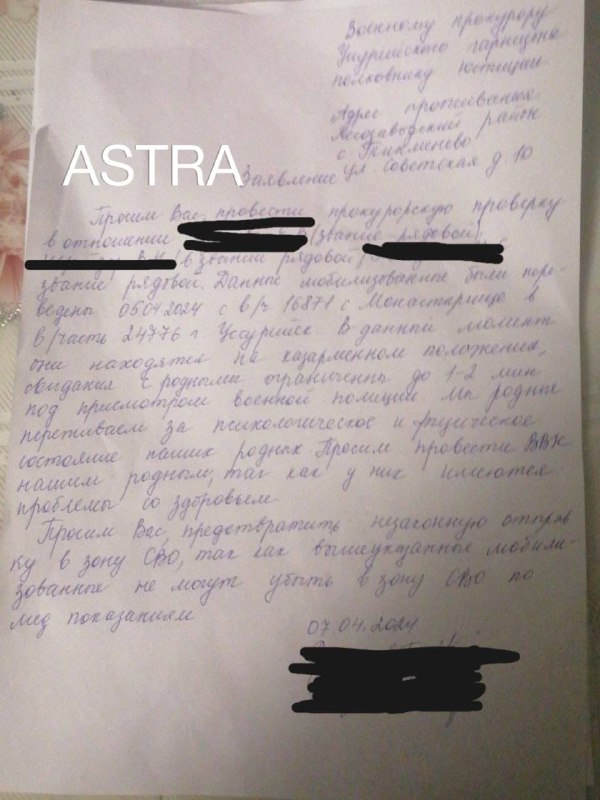 Военному прокурору
Уссурийского гарнизона
полковнику юстиции
Адрес проживания
Лесозаводский район
с Тихменево
ул Советская д. 10
ASTRA
Заявление
Просим Вас, провести прокурорскую проверку
в отношении в/звание рядовой,
в звании рядовой,
звание рядовой. Данные мобилизованные были пере-
ведены 05.04.2024 с в/ч 16871 с Монастырище в
в/часть 24776 г Уссурийск. В данный момент
они находятся на казарменном положении,
свидания с родными ограниченны до 1-2 мин
под присмотром военной полиции. Мы родные
переживаем за психологическое и физическое
состояние наших родных. Просим провести ВВК
нашим родным, так как у них имеются
проблемы со здоровьем.
Просим Вас, предотвратить незаконную отправ
ку в зону СВО, так как вышеуказанные мобили-
зованные не могут убыть в зону СВО по
мед показаниям
07.04.2024